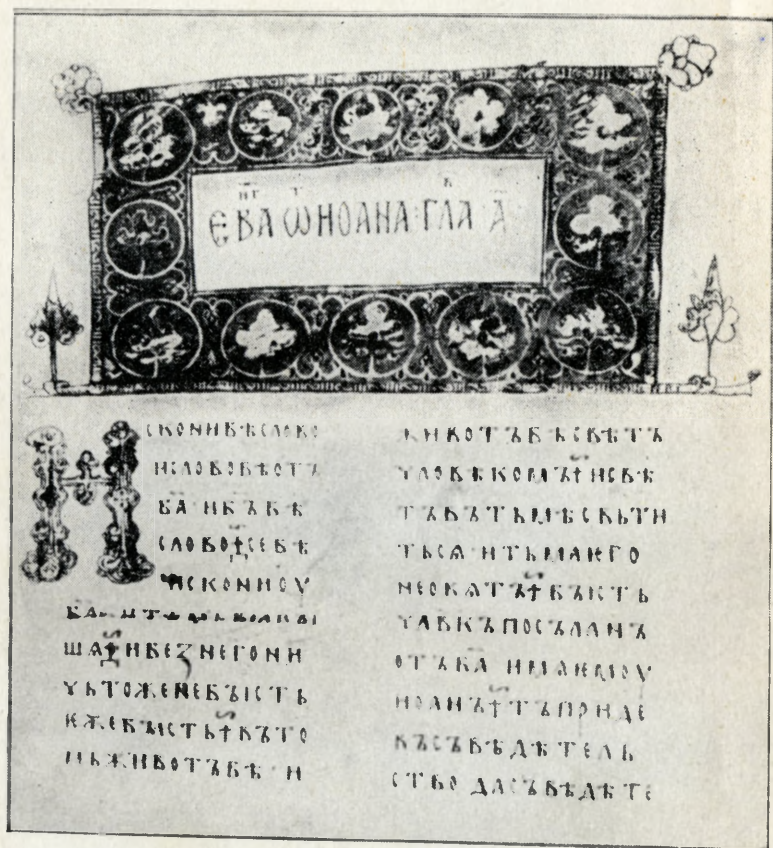 ЕВА ѠНОАНА ГЛА А
ИСКОНИ БѢ СЛОВО
И СЛОВО БѢ ОТЪ
БА И БЪ БѢ
СЛОВО † СЕ БѢ
ИСКОНИ ОУ
БА
ША † И БЕЗ НЕГО НИ
ЧЬТОЖЕ НЕ БЪІСТЬ
ЕЖЕ БЪІСТЬ † ВЪ ТО
МЬ ЖИВОТЪ БѢ И
ЖИВОТЪ БѢ СВѢТЪ
ЧЛОВѢКОМЪ † И СВѢ
ТЪ ВЪ ТЬМѢ СВЬТИ
ТЬСѦ И ТЬМА ѤГО
НЕ ОБѦТЪ † БЪІСТЬ
ЧЛВКЪ ПОСЪЛАНЪ
ОТЪ БА ИМѦ ѤМОУ
ИОАНЪ † ТЪ ПРИДЕ
ВЪ СЪВѢДѢТЕЛЬ
СТВО ДА СЪВѢДѢТЕ